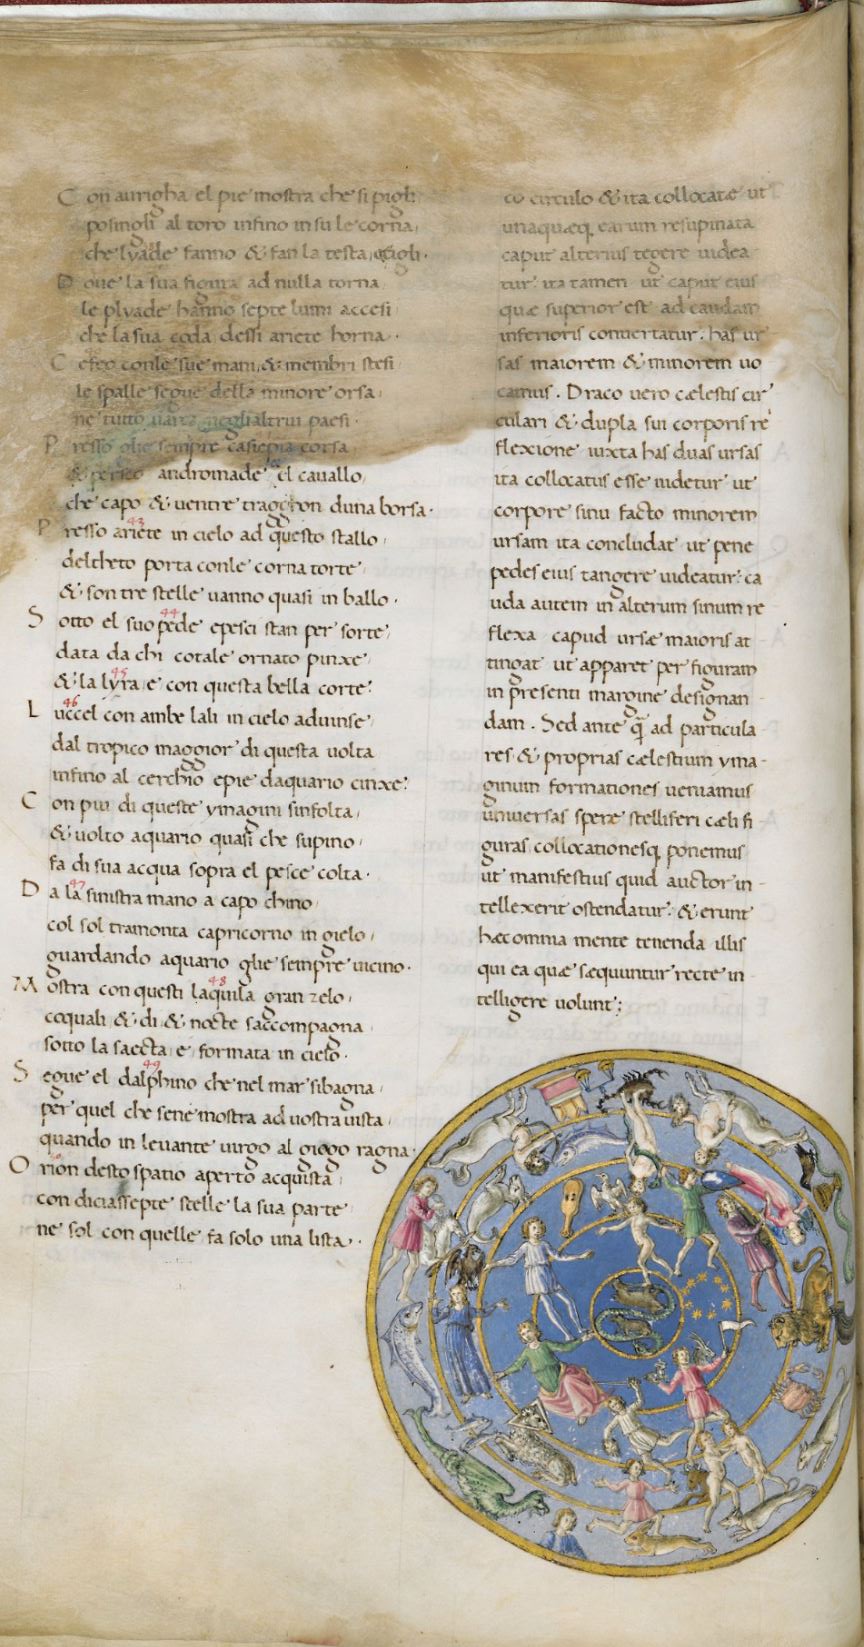 Con aurigha el pie mostra che si pigli
posingli al toro infino in su le corna,
che lyade fanno & fan la testa,
Doue la sua figura ad nulla torna
le plyade hanno septe lumi accesi
che la sua coda dessi ariete horna.
Cefeo conle sue mani, & membri stesi
le spalle segue della minore orsa,
ne tutto uarca neglialtrui paesi.
Presso glie sempre casiepia corsa
& perseo andromade el cauallo,
che capo & uentre traggron duna borsa.
43
Presso ariete in cielo ad questo stallo,
deltheto porta conle corna torte
& son tre stelle uanno quasi in ballo.
44
Sotto el suo pede epesci stan per sorte,
data da chi cotale ornato pinxe,
45
& la lyra, e con questa bella corte:
46
Luccel con ambe lali in cielo aduinse
dal tropico maggior di questa uolta
infino al cerchio epie daquario cinxe:
Con piu di queste ymagini sinfolta,
& uolto aquario quasi che supino,
fa di sua acqua sopra el pesce colta.
47
Da la sinistra mano a capo chino
col sol tramonta capricorno in gielo,
guardando aquario glie sempre uicino.
48
Mostra con questi laquila gran zelo,
coquali & di & nocte saccompagna
sotto la saecta, e, formata in cielo.
49
Segue el dalphino che nel mar sibagna,
per quel che sene mostra ad uostra uista,
quando in leuante uirgo al giogo ragna.
Orion desto spatio aperto acquista,
con diciassepte stelle la sua parte
ne sol con quelle fa solo una lista.
co circulo & ita collocatæ ut
unaquæq. earum resupinata
caput alterius tegere uidea
tur ita tamen ut caput eius
quæ superior est ad caudam
inferioris conuertatur. has ur
sas maiorem & minorem uo
camus. Draco uero cælestis cir
culari & dupla sui corporis re
flexione iuxta has duas ursas
ita collocatus esse uidetur ut
corpore sinu facto minorem
ursam ita concludat ut pene
pedes eius tangere uideatur: ca
uda autem in alterum sinum re
flexa capud ursæ maioris at
tingat ut apparet per figuram
in presenti margine designan
dam. Sed ante q̄ ad particula
res & proprias cælestium yma-
ginum formationes ueniamus
uniuersas speræ stelliferi cæli fi
guras collocationesq ponemus
ut manifestius quid auctor in-
tellexerit ostendatur: & erunt
hæc omnia mente tenenda illis
qui ea quæ sæquuntur recte in-
telligere uolunt: